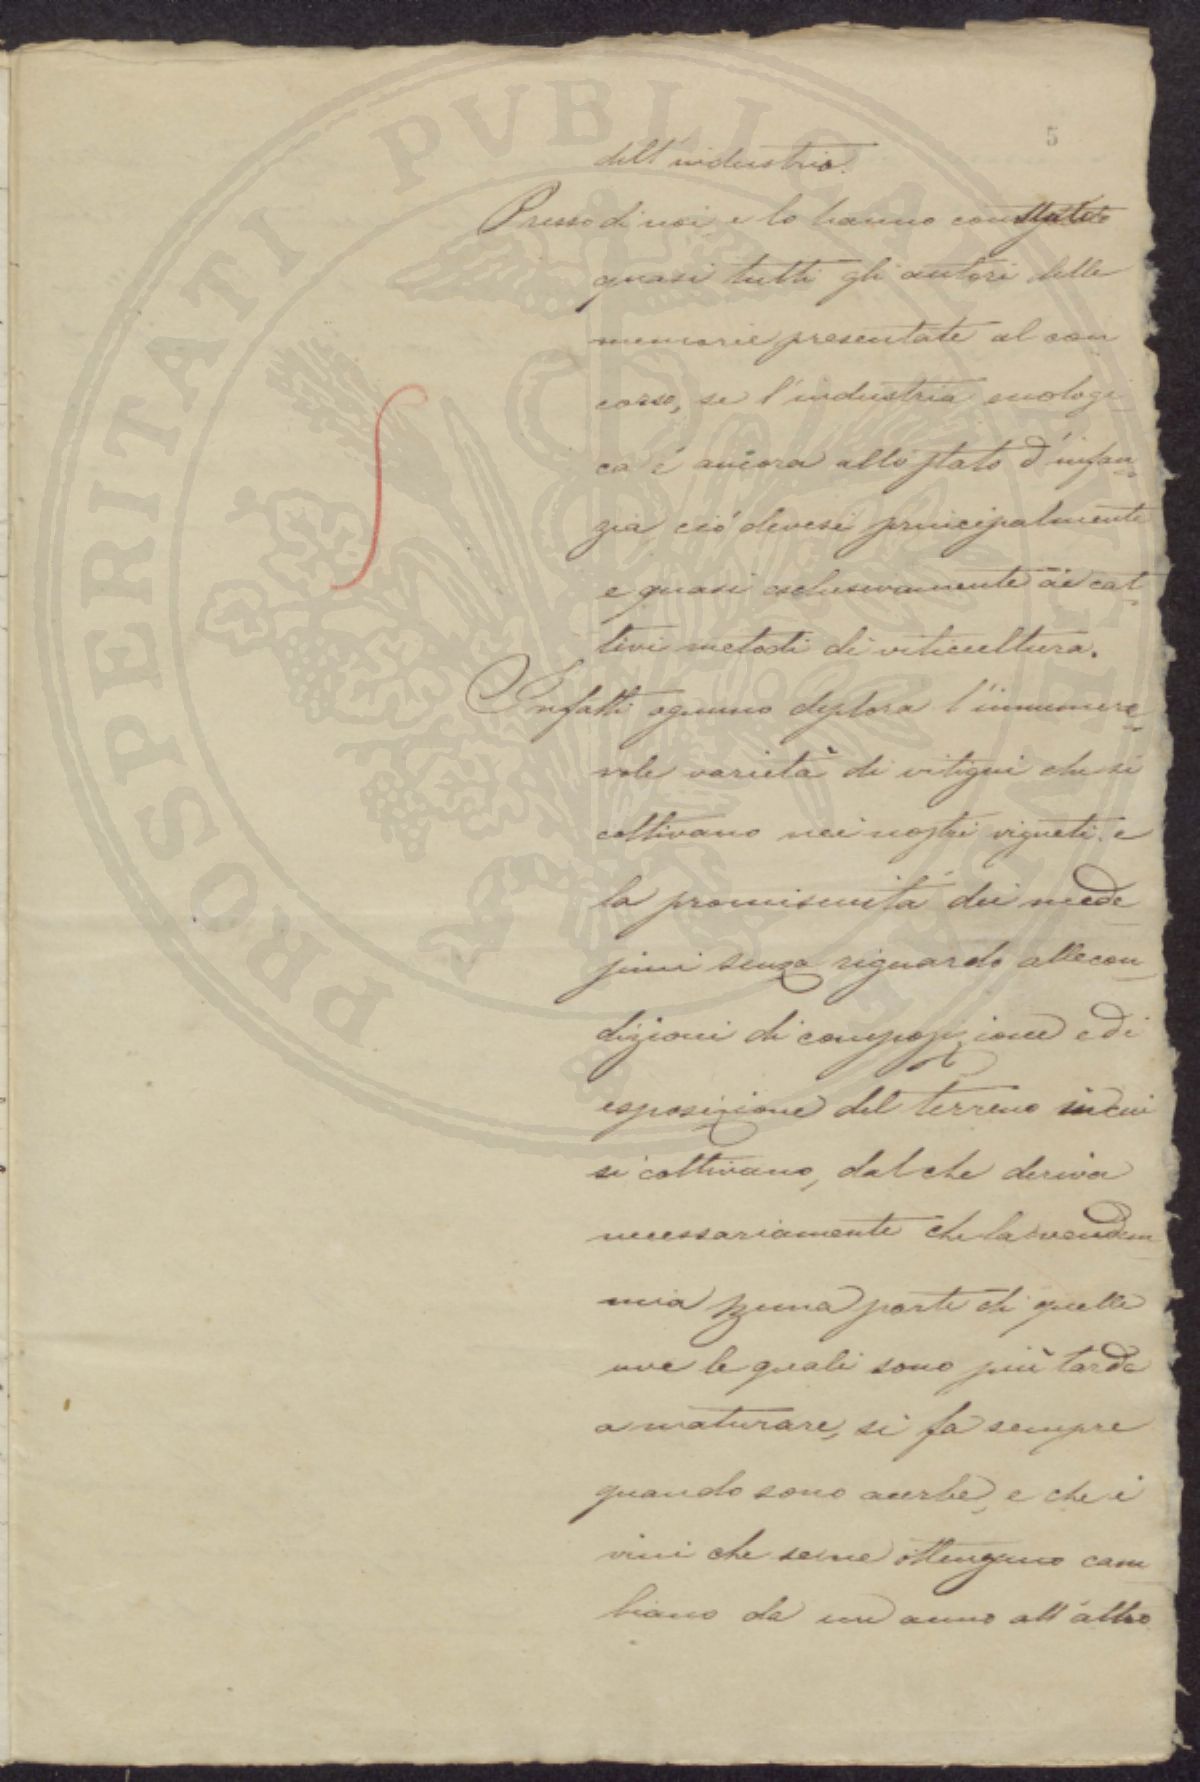 5
dell'industria.
Presso di noi, e lo hanno constatato
quasi tutti gli autori delle
memorie presentate al con
corso, se l'industria enologi
ca é ancora allo stato d'infan-
zia, ció devesi principalmente
e quasi esclusivamente ai cat-
tivi metodi di viticultura.
Infatti ognuno deplora l'innumere-
vole varietà di vitigni che si
coltivano nei nostri vigneti. e
la promiscuitá dei mede
simi senza riguardo alle con-
dizioni di composizione e di
esposizione del terreno in cui
si coltivano, dal che deriva
necessariamente che la vendem
mia d'una parte di quelle
uve le quali sono più tarde
a maturare, si fa sempre
quando sono acerbe, e che i
vini che se ne ottengono cam
biano da un anno all'altro
PROSPERITATI PVBLICAE AVGENDAE